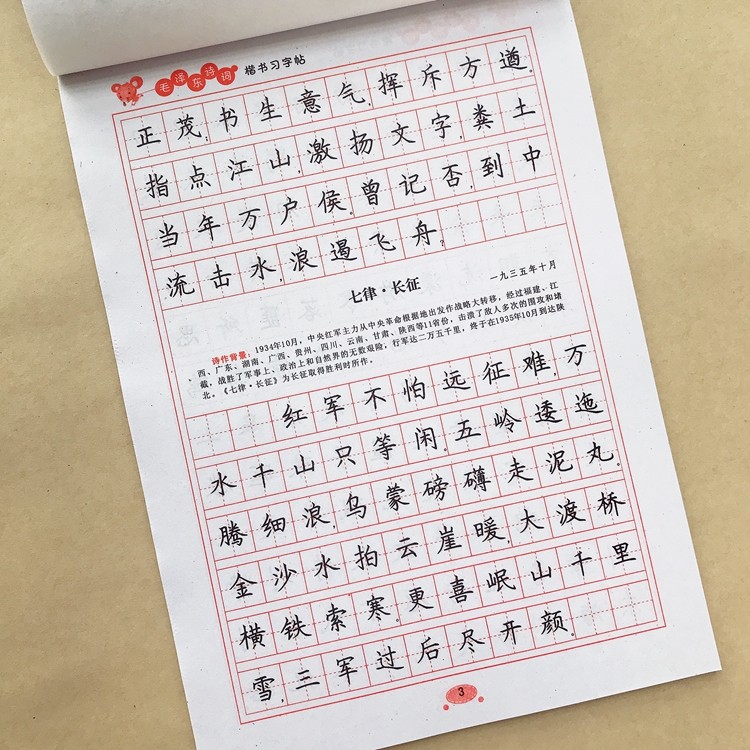 毛泽东诗词 楷书习字帖
正茂;书生意气,挥斥方遒。
指点江山,激扬文字,粪土
当年万户侯。曾记否,到中
流击水,浪遏飞舟?
七律·长征
一九三五年十月
诗作背景:1934年10月,中央红军主力从中央革命根据地出发作战略大转移,经过福建、江
西、广东、湖南、广西、贵州、四川、云南、甘肃、陕西等11省份,击溃了敌人多次的围攻和堵
截,战胜了军事上、政治上和自然界的无数艰险,行军达二万五千里,终于在1935年10月到达陕
北。《七律·长征》为长征取得胜利时所作。
红军不怕远征难,万
水千山只等闲。五岭逶迤
腾细浪,乌蒙磅礴走泥丸。
金沙水拍云崖暖,大渡桥
横铁索寒。更喜岷山千里
雪,三军过后尽开颜。
3